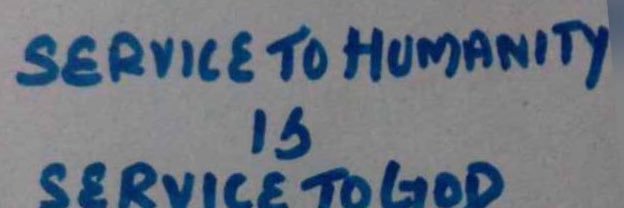 SERVICE TO HUMANITY
IS
SERVICE TO GOD